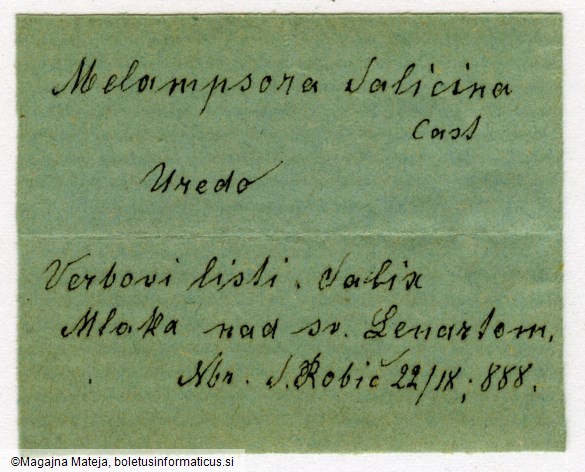 Melampsora Salicina
Cast
Uredo
Verbovi listi. Salix
Mlaka nad sv. Lenartom.
Nbr. S. Robič 22/IX; 888.
©Magajna Mateja, boletusinformaticus.si